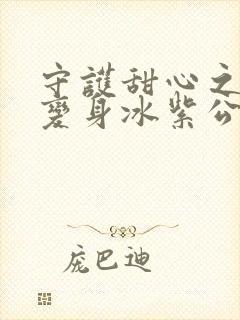 守護甜心之
變身冰紫公
庞巴迪